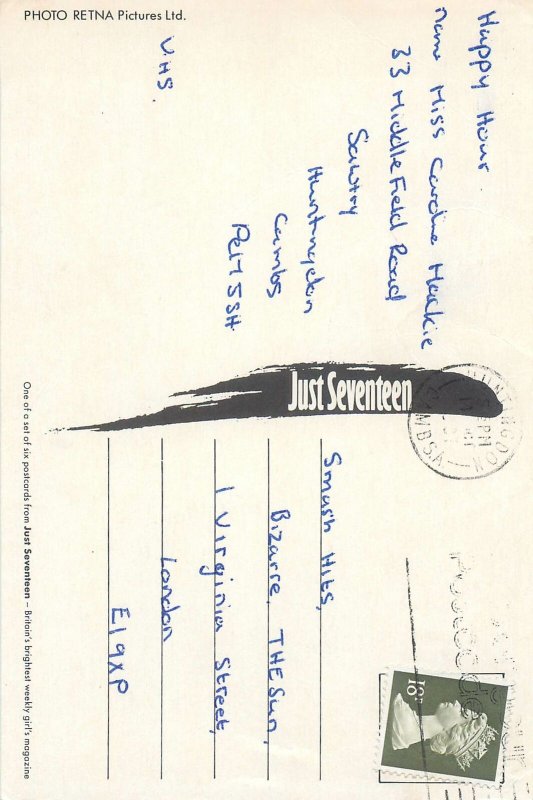 PHOTO RETNA Pictures Ltd.
Happy Hour.
name Miss Caroline Mackie
33 Middlefield Road
Sawtry
Huntingdon
Cambs
PE17 5SH
VHS.
Just Seventeen
HUNTINGDON
CAMBS A
PM
Smash Hits,
Bizarre, THE Sun,
1 Virginia Street,
London
E1 9XP
Postcode
18P
One of a set of six postcards from Just Seventeen – Britain's brightest weekly girl's magazine